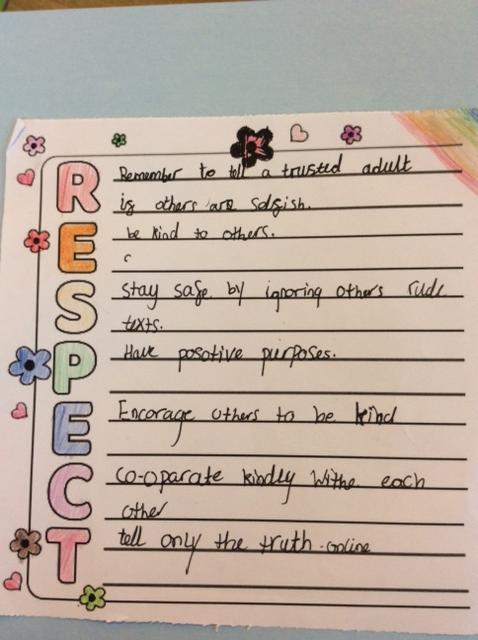 R Remember to tell a trusted adult
if others are selfish.
E be kind to others.
c
S Stay safe by ignoring others rude
texts.
P Have posotive purposes.
E Encorage others to be kind
C co-oparate kindly withe each
other
T tell only the truth online